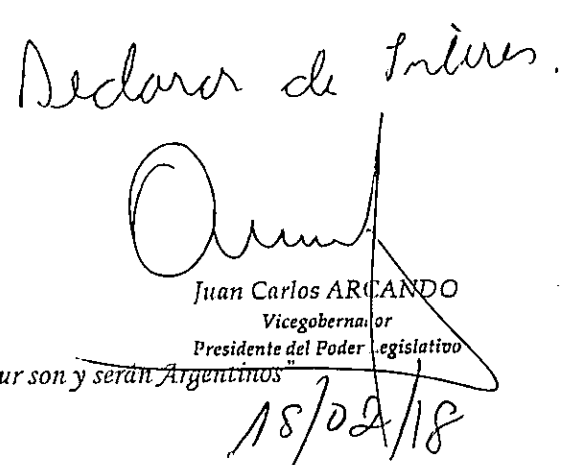 Declarar de Interes.
Juan Carlos ARCANDO
Vicegobernador
Presidente del Poder Legislativo
ur son y serán Argentinos"
15/02/18